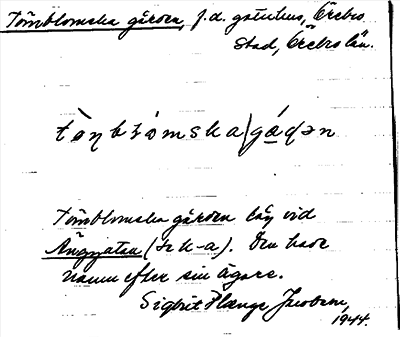 Törnblomska gården, f.d. gatuhus, Örebro
stad, Örebro län.
tö̀ɳbɫómska/gáɖən
Törnblomska gården låg vid
Ängsgatan (Sk-a). Den hade
namn efter sin ägare.
Sigbrit Plænge Jacobson,
1944.